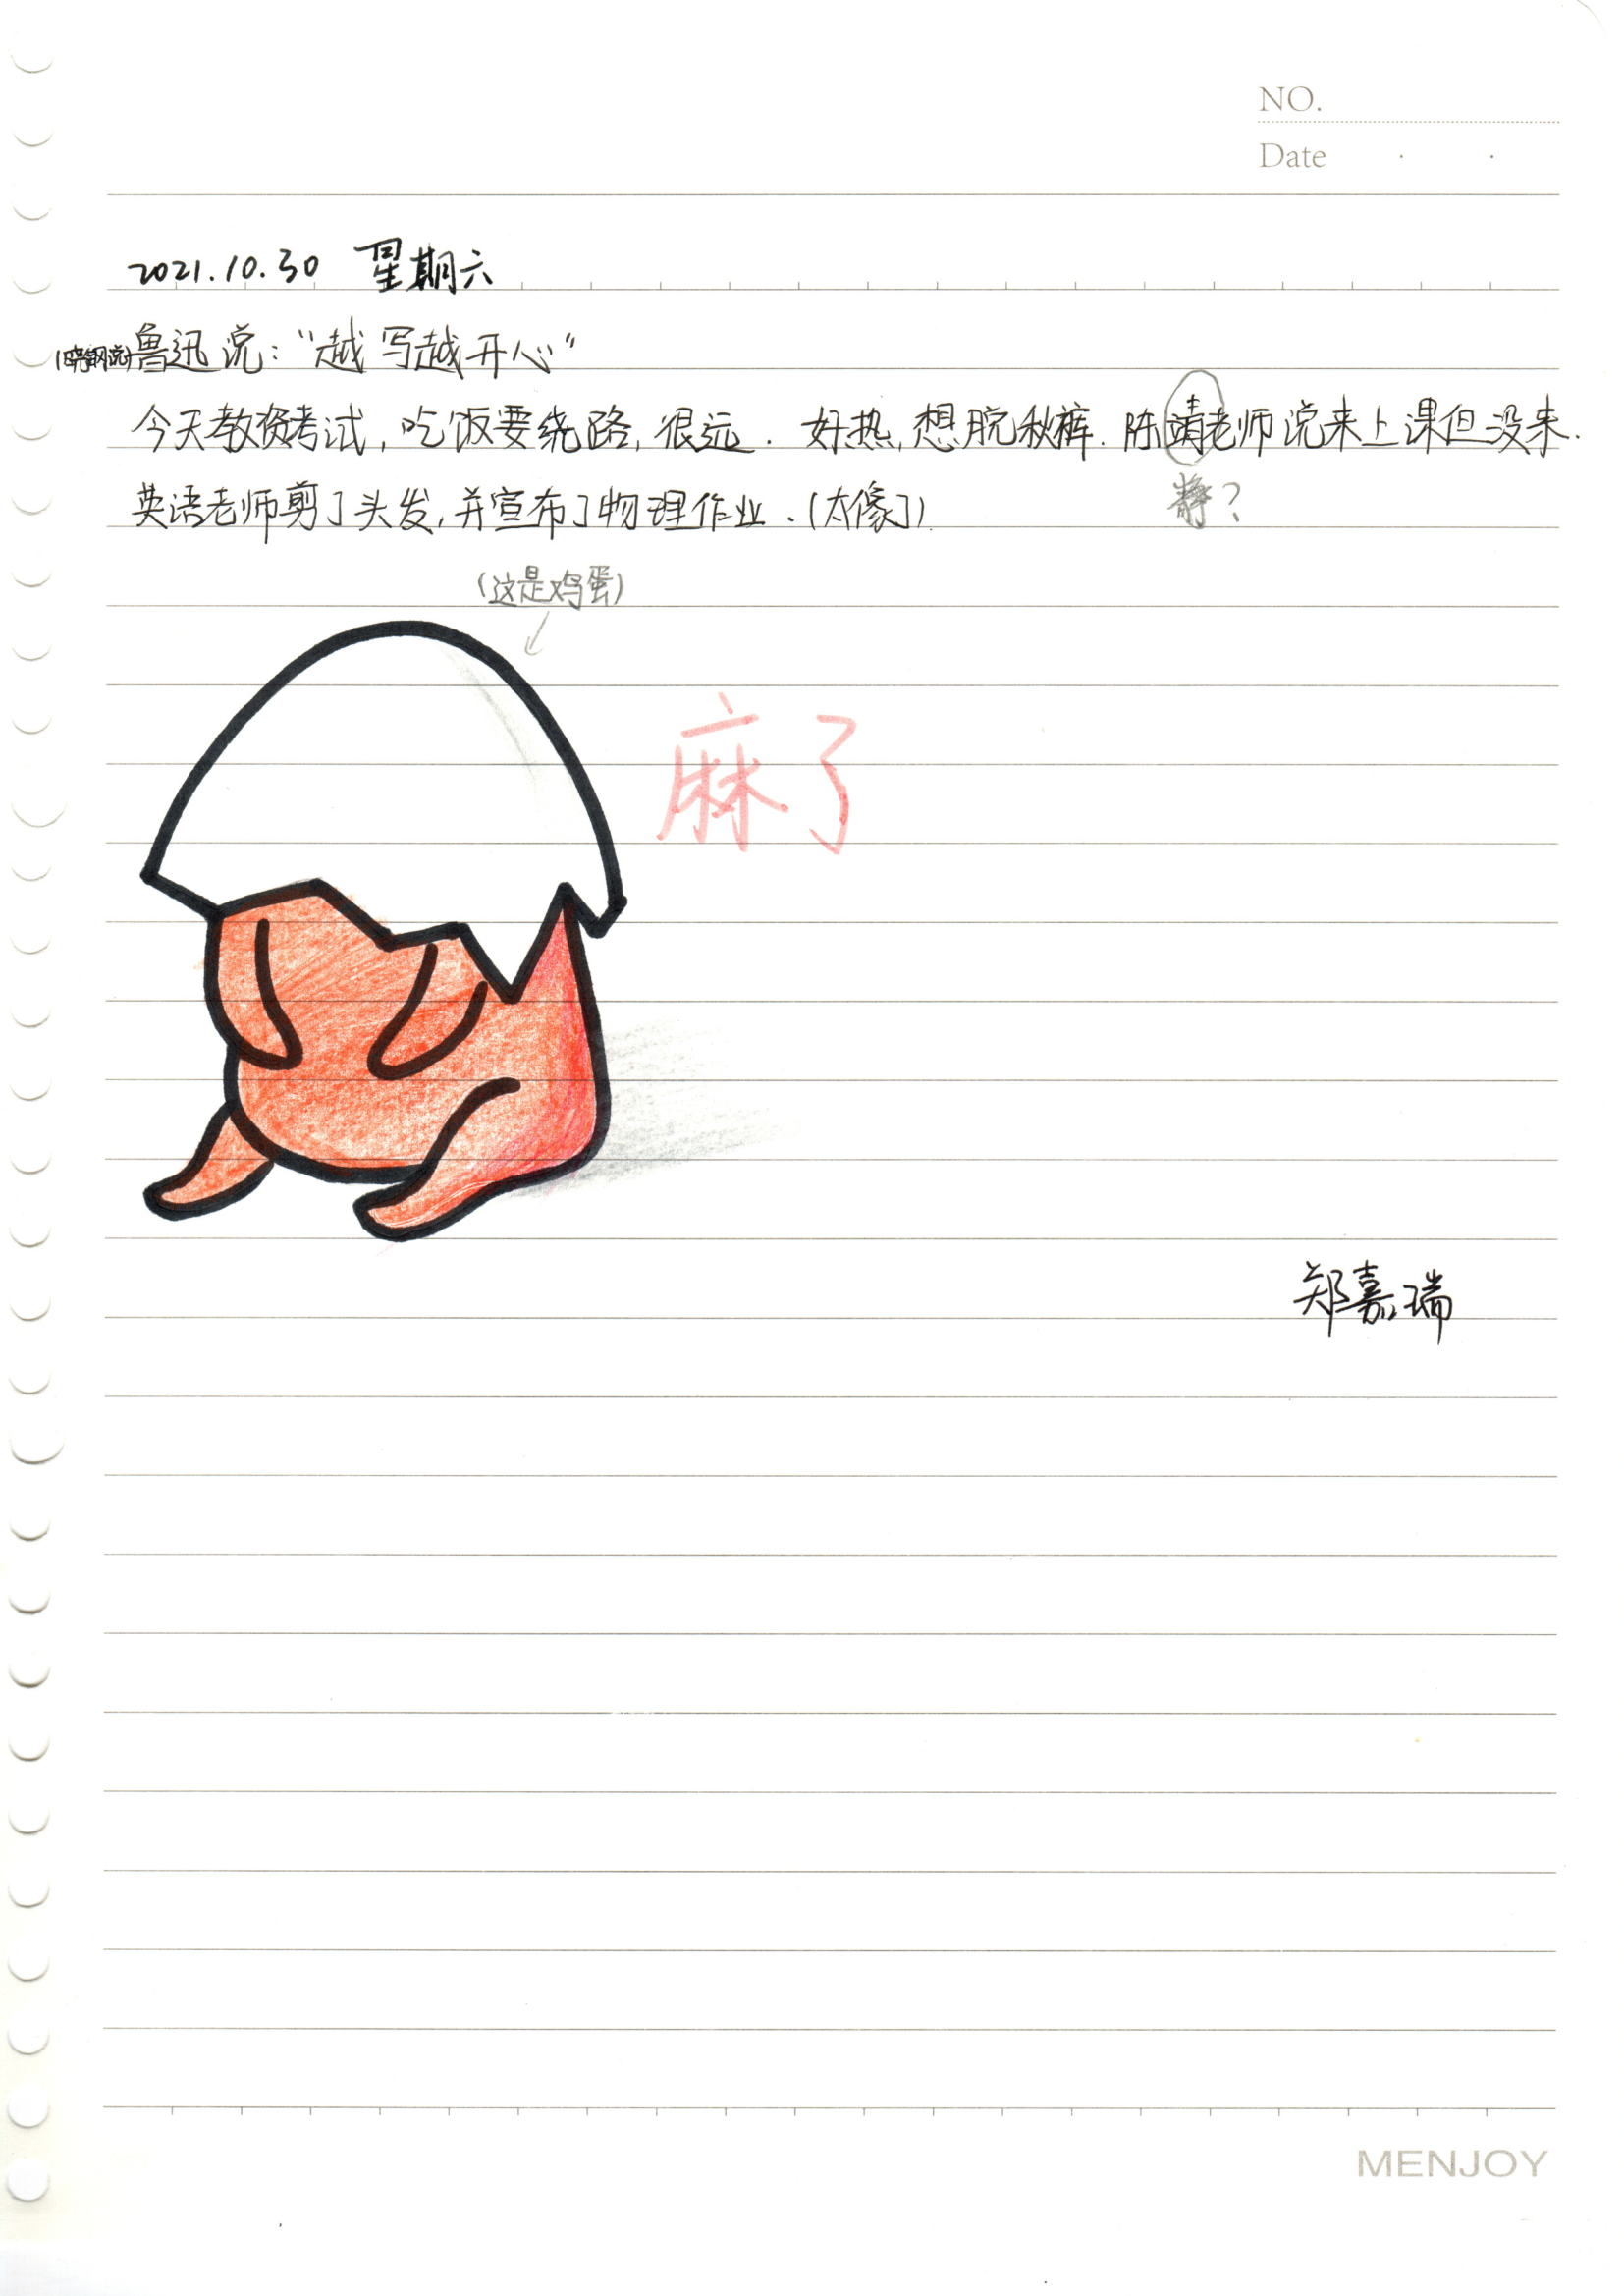 NO.
Date
2021.10.30 星期六
鲁迅说：“越写越开心”
今天教资考试，吃饭要绕路，很远．好热，想脱秋裤．陈靖老师说来上课但没来．
静？
英语老师剪了头发，并宣布了物理作业．（太像了）
（这是鸡蛋）
麻了
郑嘉瑞
MENJOY